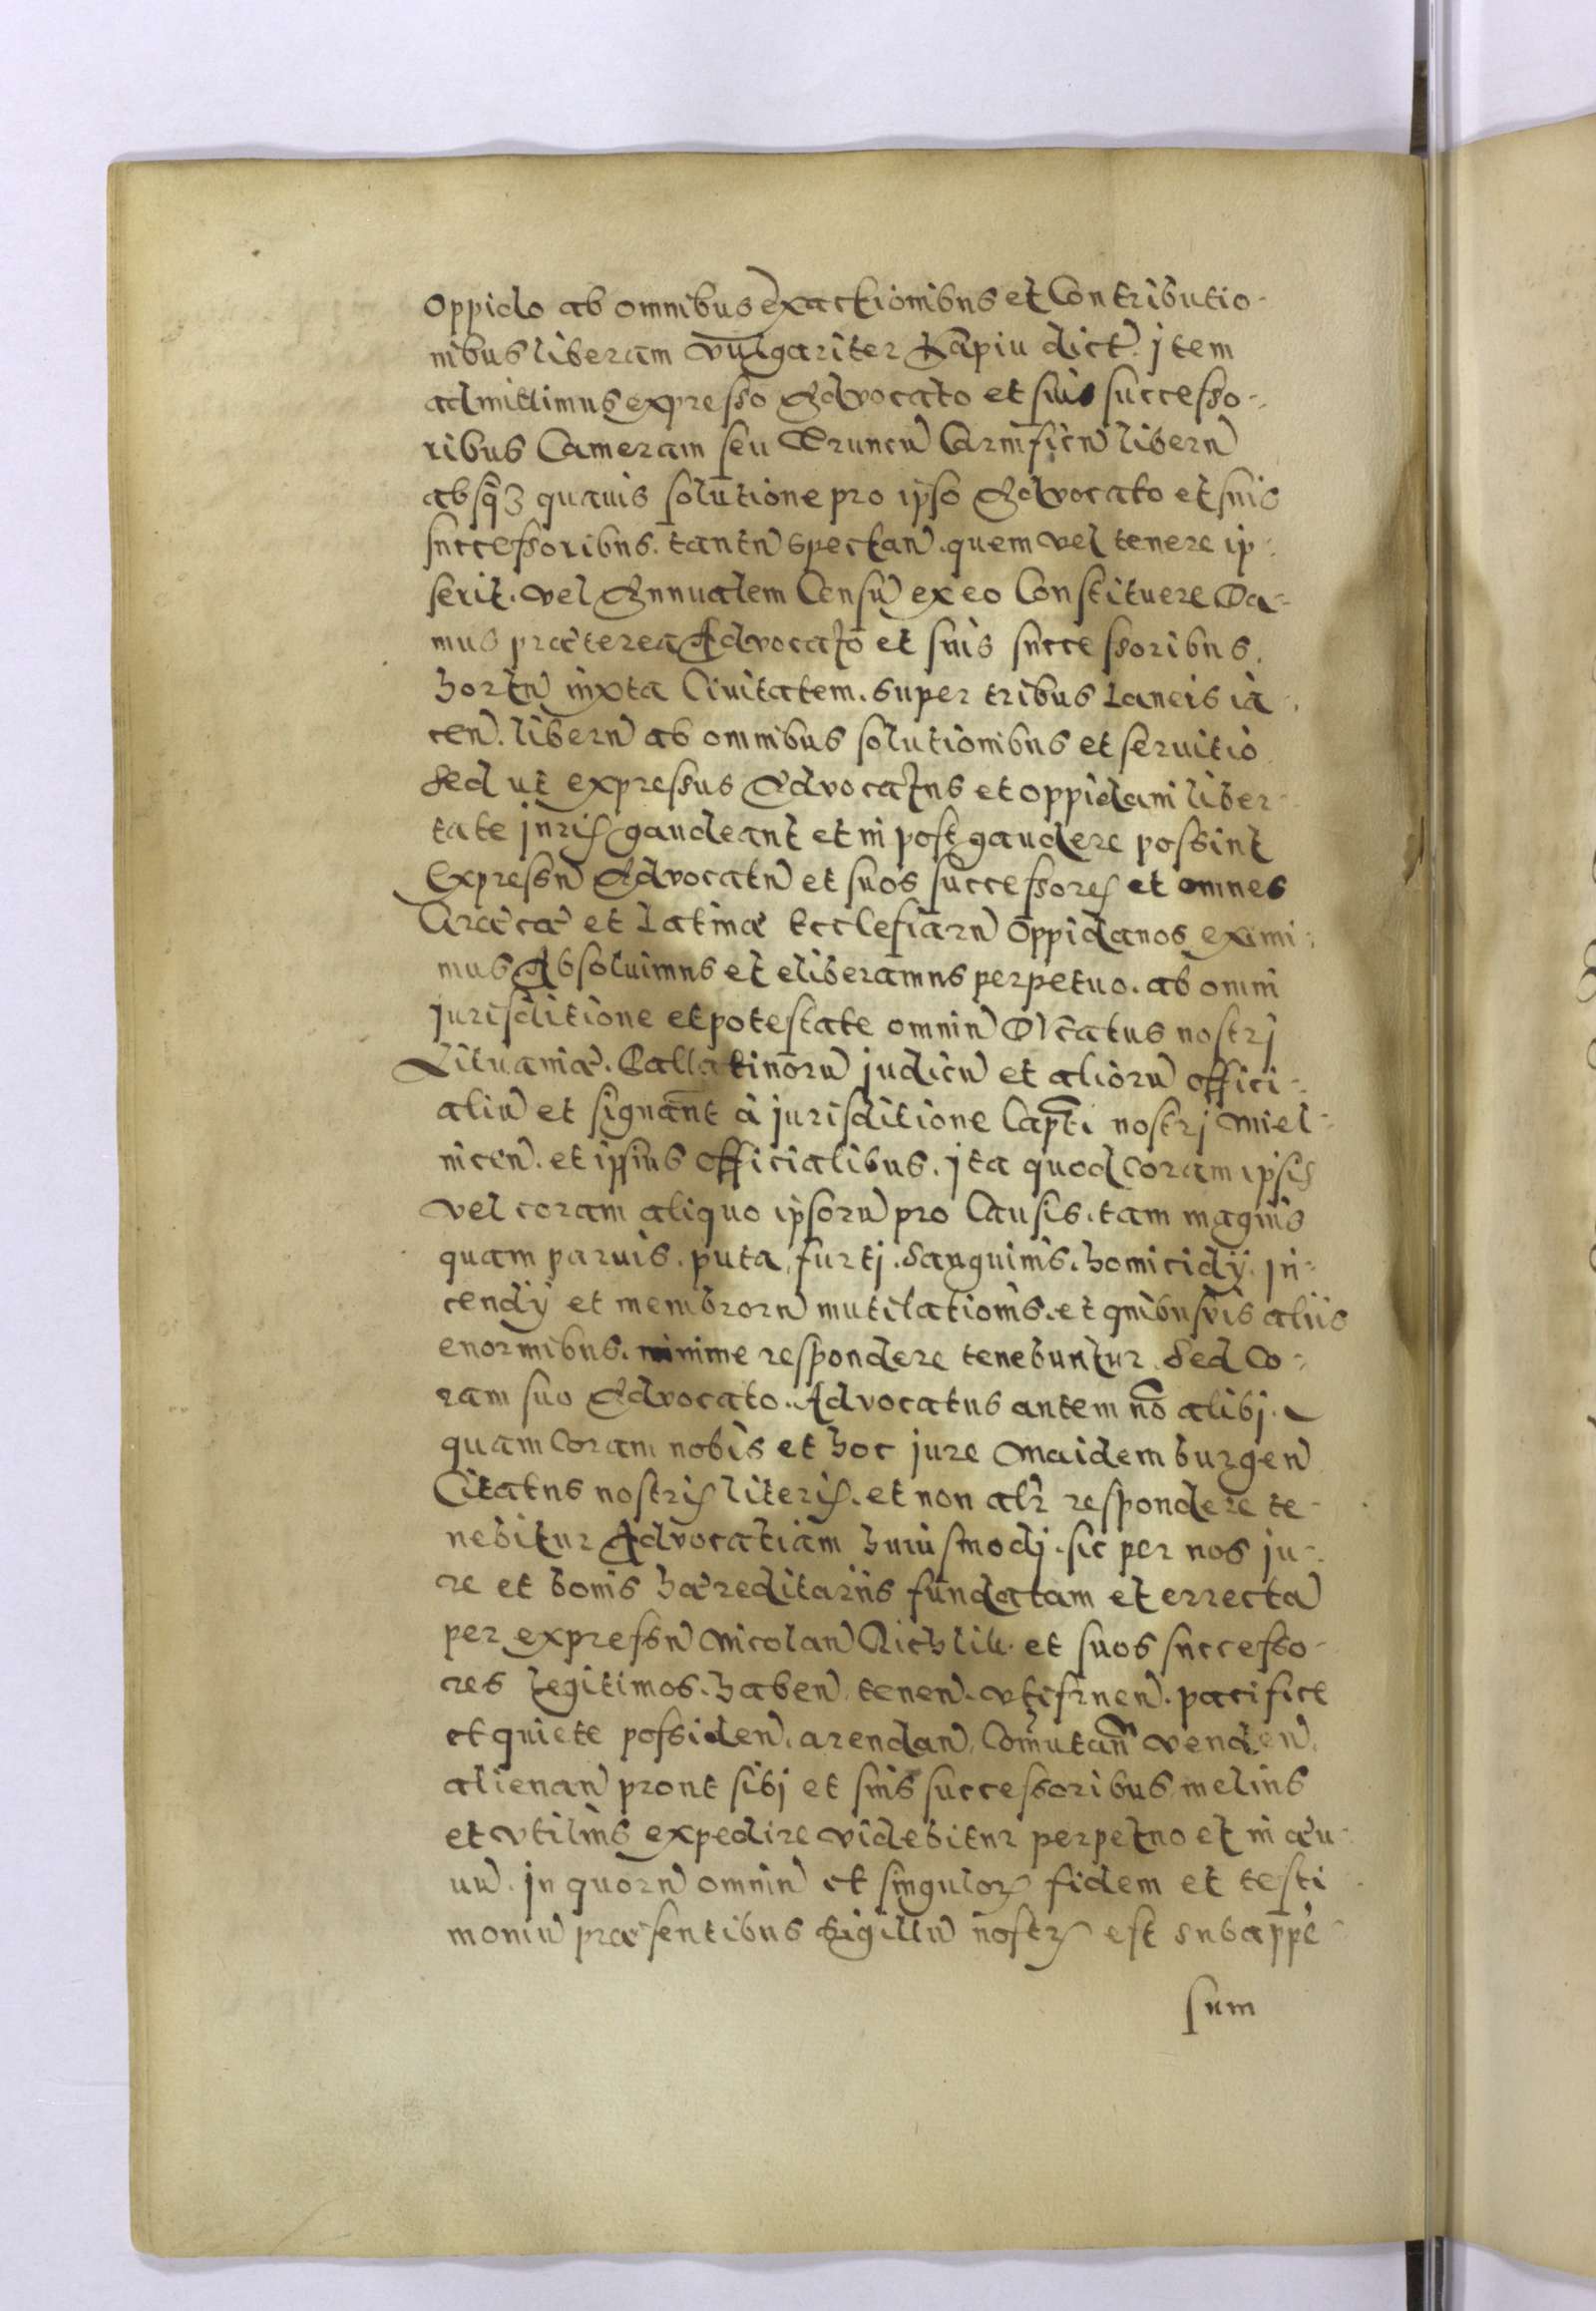 oppido ab omnibus exactionibus et Contributio-
nibus liberam vulgariter Kãpiu dict. jtem
admittimus expresso Advocato et suis successo-
ribus Cameram seu Truncũ Carnificũ liberũ
absq3 quauis solutione pro ipso Advocato et suis
successoribus. tantũ spectan̄. quem vel tenere ip-
serit. vel Annualem Censũ ex eo Constituere Da-
mus præterea Advocato et suis successoribus.
hortũ iuxta Ciuitatem. super tribus Laneis ia-
cen̄. liberũ ab omnibus solutionibus et seruitio
Sed ut expressus Advocatus et oppidani liber-
tate juris gaudeant et in post gaudere possint
Expressũ Advocatũ et suos successores et omnes
Græcæ et Latinæ Ecclesiarũ Oppidanos eximi-
mus Absoluimus et eliberamus perpetuo. ab omni
jurisditione et potestate omniũ Dũcatus nostrj
Lituaniæ. Pallatinorũ judicũ et aliorũ offici-
aliũ et signant à jurisditione Capti nostrj Miel-
nicen̄. et ipsius officialibus. jta quod coram ipsis
vel coram aliquo ipsorũ pro Causis. tam magnis
quam paruis. puta, furtj. Sanguinis. homicidÿ. jn-
cendÿ et membrorũ mutilationis. et quibusvis aliis
enormibus. minime respondere tenebuntur. Sed Co-
ram suo Advocato. Advocatus autem nõ alibj.
quam Coram nobis et hoc jure Maidemburgen̄
Citatus nostris literis. et non alr̃ respondere te-
nebitur Advocatiam huiusmodj. sic per nos ju-
re et bonis hæreditariis fundatam et errectã
per expressũ Nicolaũ Richlik. et suos successo-
res legitimos. haben̄. tenen̄. vtifruen̄. pacifice
et quiete possiden̄. arendan̄. Com̃utan̄ venden̄.
alienan̄ prout sibj et suis successoribus melius
et vtilius expedire videbitur perpetuo et in æu-
uũ. jn quorũ omniũ et singulor fidem et testi
moniũ præsentibus Sigillũ nostr est subappẽ
sum